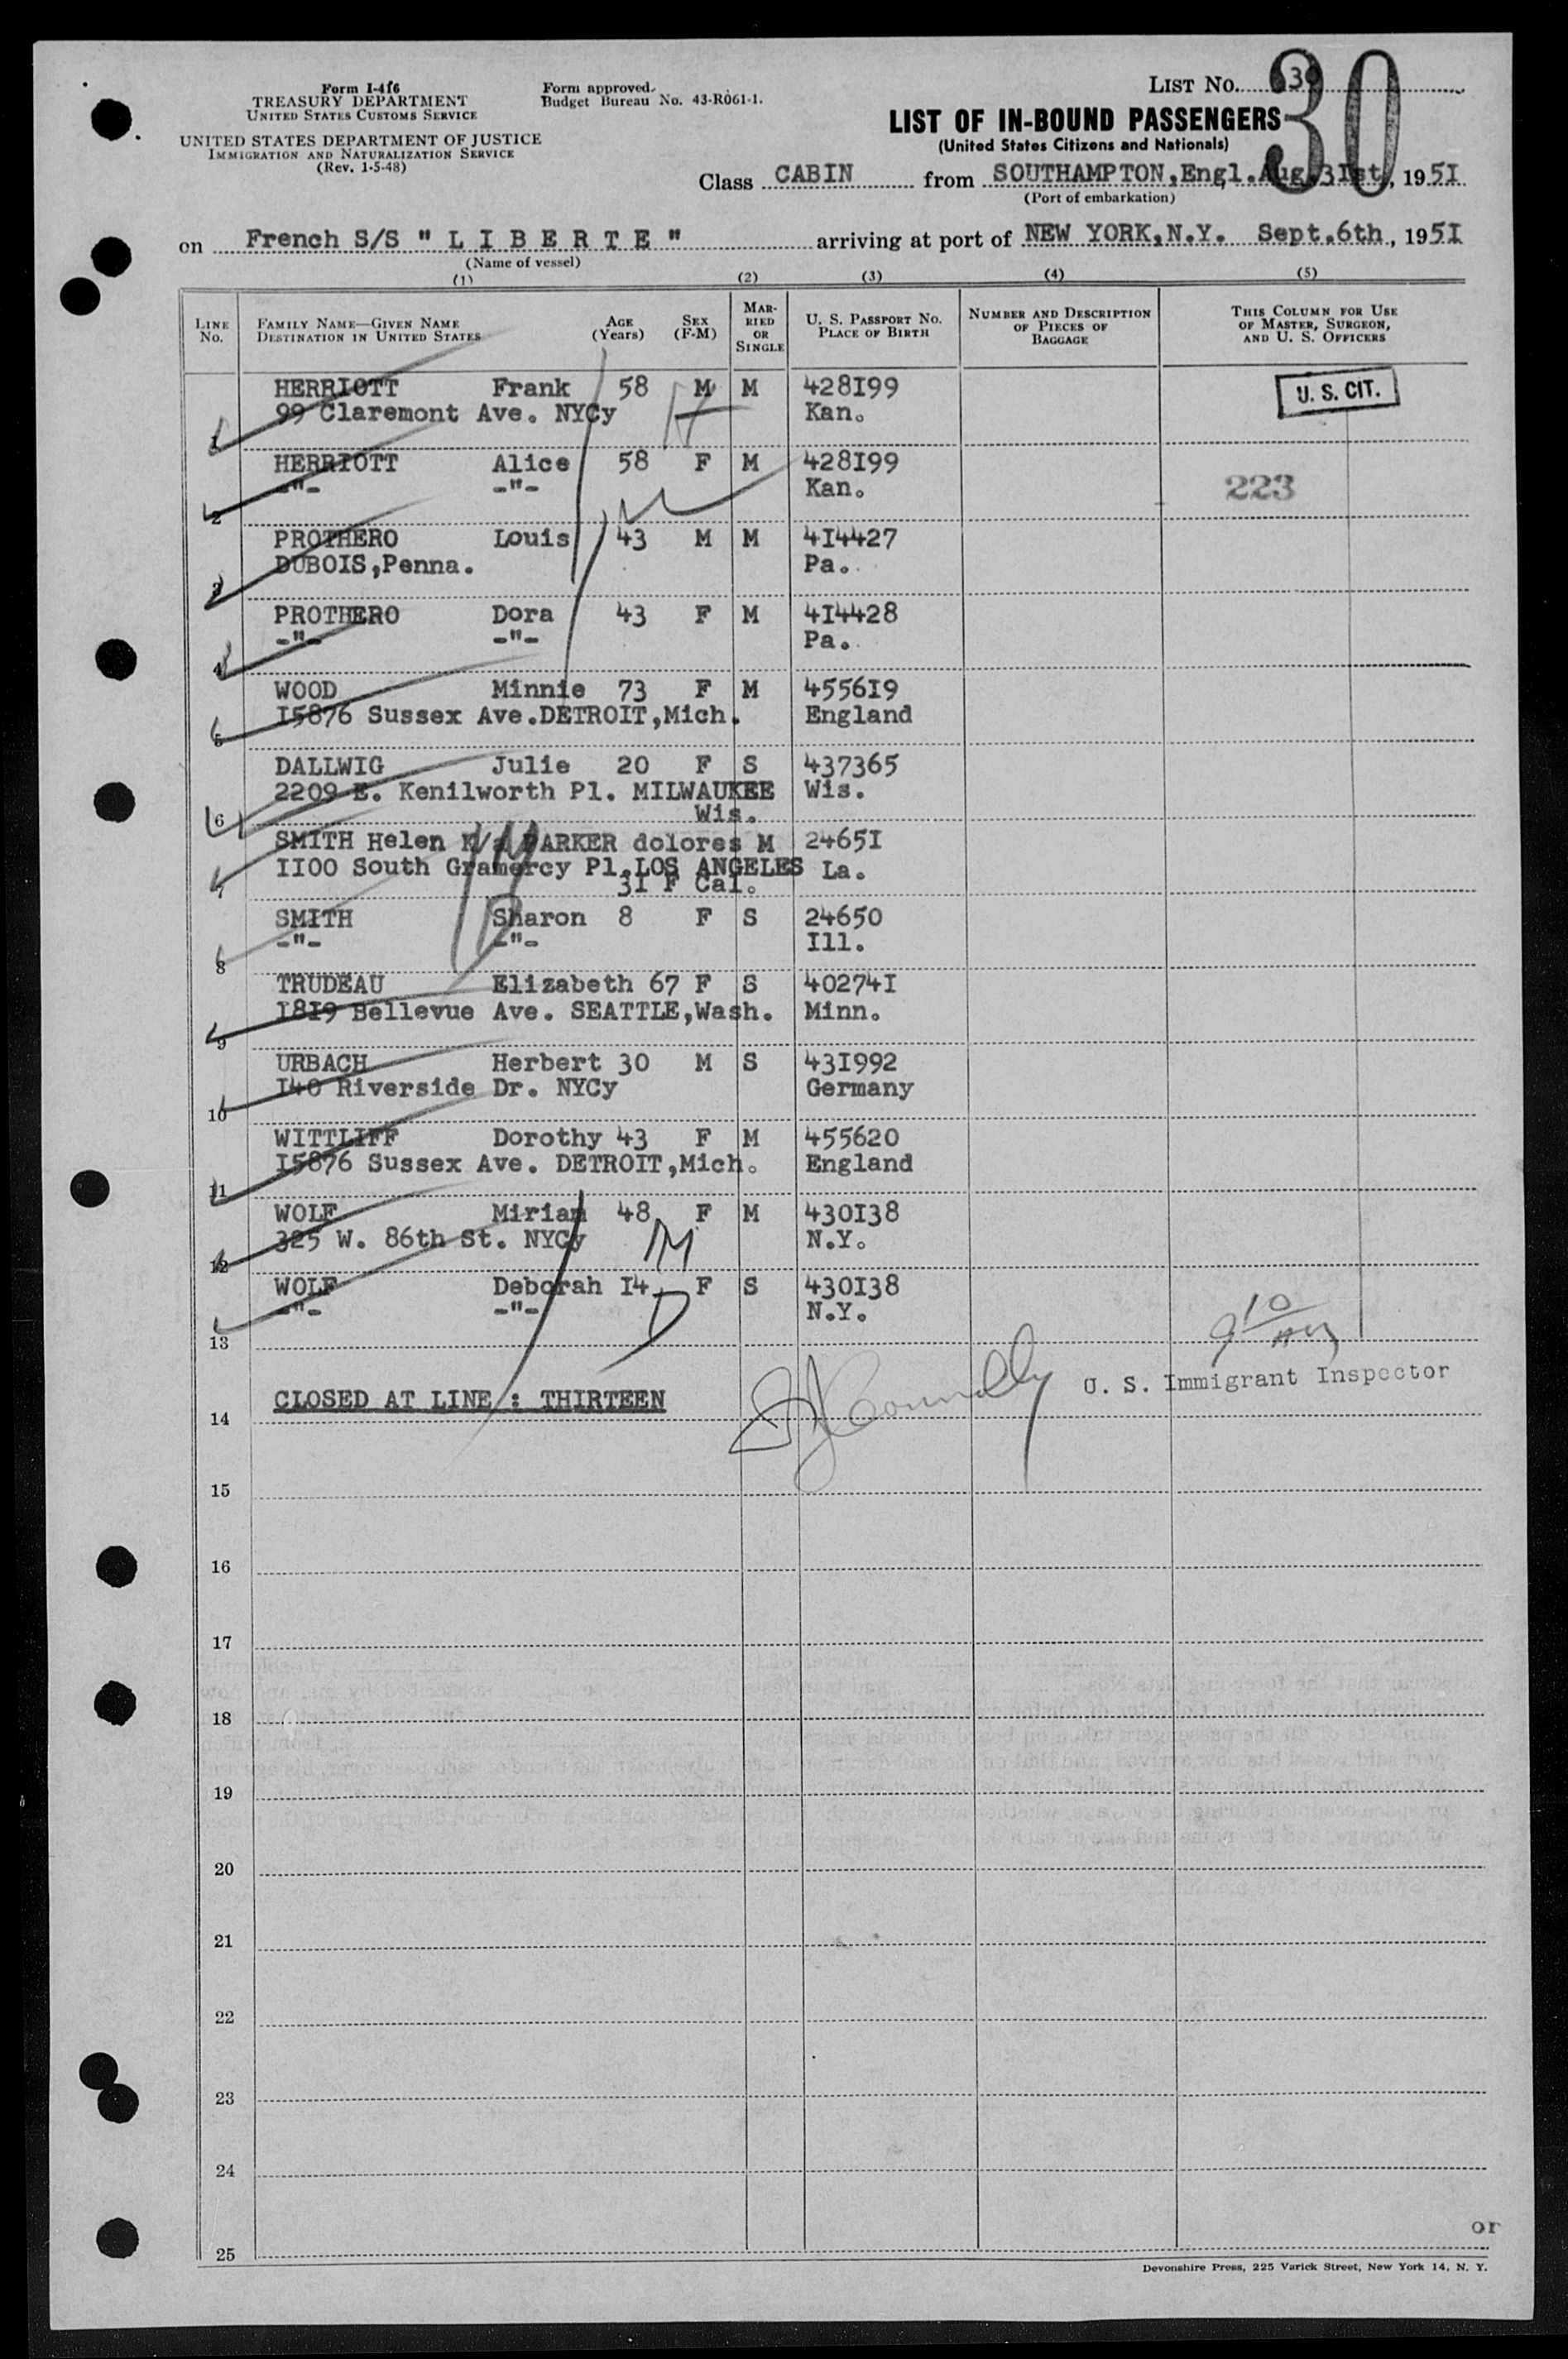 Form I-416
TREASURY DEPARTMENT
UNITED STATES CUSTOMS SERVICE
UNITED STATES DEPARTMENT OF JUSTICE
IMMIGRATION AND NATURALIZATION SERVICE
(Rev. 1-5-48)
Form approved.
Budget Bureau No. 43-R061-1.
LIST No. 30
LIST OF IN-BOUND PASSENGERS
(United States Citizens and Nationals)
Class CABIN from SOUTHAMPTON,Engl.Aug.3Ist, 195I
(Port of embarkation)
on French S/S " L I B E R T E " arriving at port of NEW YORK,N.Y. Sept.6th, 195I
(Name of vessel)
(1) (2) (3) (4) (5)
LINE No. FAMILY NAME—GIVEN NAME DESTINATION IN UNITED STATES AGE (Years) SEX (F-M) MARRIED OR SINGLE U. S. PASSPORT No. PLACE OF BIRTH NUMBER AND DESCRIPTION OF PIECES OF BAGGAGE THIS COLUMN FOR USE OF MASTER, SURGEON, AND U. S. OFFICERS
HERRIOTT Frank 58 M M 428I99 U. S. CIT.
1 99 Claremont Ave. NYCy Kan.
HERRIOTT Alice 58 F M 428I99
2 -"- -"- Kan. 223
PROTHERO Louis 43 M M 4I4427
3 DUBOIS,Penna. Pa.
PROTHERO Dora 43 F M 4I4428
4 -"- -"- Pa.
WOOD Minnie 73 F M 4556I9
5 I5876 Sussex Ave.DETROIT,Mich. England
DALLWIG Julie 20 F S 437365
2209 E. Kenilworth Pl. MILWAUKEE Wis.
6 Wis.
SMITH Helen K/a PARKER dolores M 2465I
II00 South Gramercy Pl.LOS ANGELES La.
7 3I F Cal.
SMITH Sharon 8 F S 24650
8 -"- -"- Ill.
TRUDEAU Elizabeth 67 F S 40274I
9 I8I9 Bellevue Ave. SEATTLE,Wash. Minn.
URBACH Herbert 30 M S 43I992
10 I40 Riverside Dr. NYCy Germany
WITTLIFF Dorothy 43 F M 455620
11 I5876 Sussex Ave. DETROIT,Mich. England
WOLF Miriam 48 F M 430I38
12 325 W. 86th St. NYCy N.Y.
WOLF Deborah I4 F S 430I38
13 -"- -"- N.Y.
CLOSED AT LINE : THIRTEEN
Connelly U. S. Immigrant Inspector
14
15
16
17
18
19
20
21
22
23
24
25
or
Devonshire Press, 225 Varick Street, New York 14, N. Y.